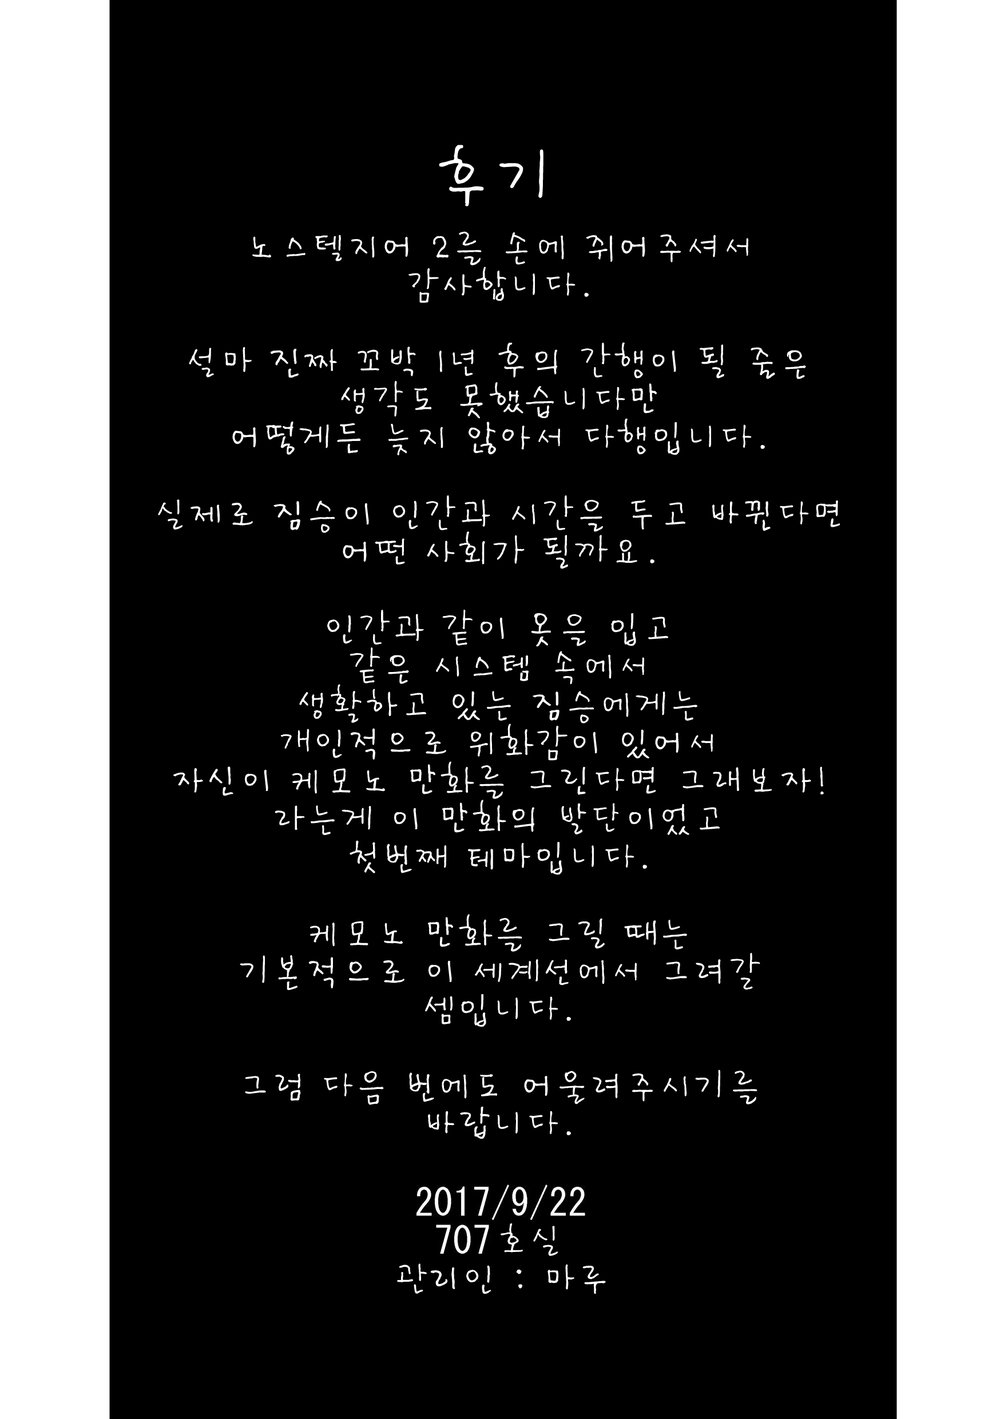 후기
노스텔지어 2를 손에 쥐어주셔서
감사합니다.
설마 진짜 꼬박 1년 후의 간행이 될 줄은
생각도 못했습니다만
어떻게든 늦지 않아서 다행입니다.
실제로 짐승이 인간과 시간을 두고 바뀐다면
어떤 사회가 될까요.
인간과 같이 옷을 입고
같은 시스템 속에서
생활하고 있는 짐승에게는
개인적으로 위화감이 있어서
자신이 케모노 만화를 그린다면 그래보자!
라는게 이 만화의 발단이었고
첫번째 테마입니다.
케모노 만화를 그릴 때는
기본적으로 이 세계선에서 그려갈
셈입니다.
그럼 다음 번에도 어울려주시기를
바랍니다.
2017/9/22
707호실
관리인 : 마루